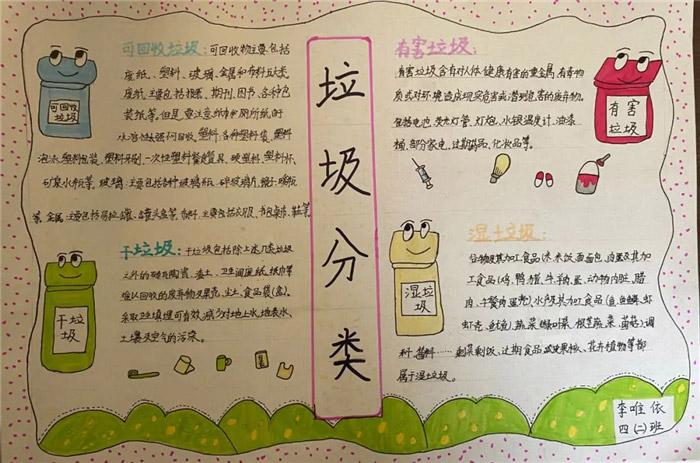 垃圾分类
可回收垃圾:可回收物主要包括
废纸、塑料、玻璃、金属和布料五大类
废纸主要包括报纸、期刊、图书、各种包
装纸等。但是,要注意纸巾和厕所纸由
于水溶性太强不可回收,塑料:各种塑料袋、塑料
泡沫、塑料包装、塑料牙刷、一次性塑料餐盒餐具、硬塑料、塑料杯、
矿泉水瓶等,玻璃:主要包括各种玻璃瓶、碎玻璃片、镜子、暖瓶
等,金属:主要包括易拉罐、罐头盒等,布料:主要包括衣服、书包、桌布、鞋等
可回收
垃圾
有害垃圾:
有害垃圾含有对人体健康有害的重金属、有毒物
质或对环境造成现实危害或潜在危害的废弃物。
包括电池、荧光灯管、灯泡、水银温度计、油漆
桶、部分家电、过期药品、化妆品等。
有害
垃圾
干垃圾:干垃圾包括除上述几类垃圾
之外的砖瓦陶瓷、渣土、卫生间废纸、纸巾等
难以回收的废弃物及果壳、尘土、食品袋(盒)。
采取卫生填埋可有效减少对地下水、地表水、
土壤及空气的污染。
干垃
圾
湿土垃圾:
谷物及其加工食品(米、米饭、面、面包、肉蛋及其加
工食品(鸡、鸭、猪、牛、羊肉、蛋、动物内脏、腊
肉、午餐肉、蛋壳)水产及其加工食品(鱼、鱼鳞、虾
虾壳、鱿鱼)蔬菜(绿叶菜、根茎蔬菜、菌菇)调
料、酱料……剩菜剩饭、过期食品、瓜皮果核、花卉植物等都
属于湿垃圾。
湿垃
圾
李唯依
四(二)班